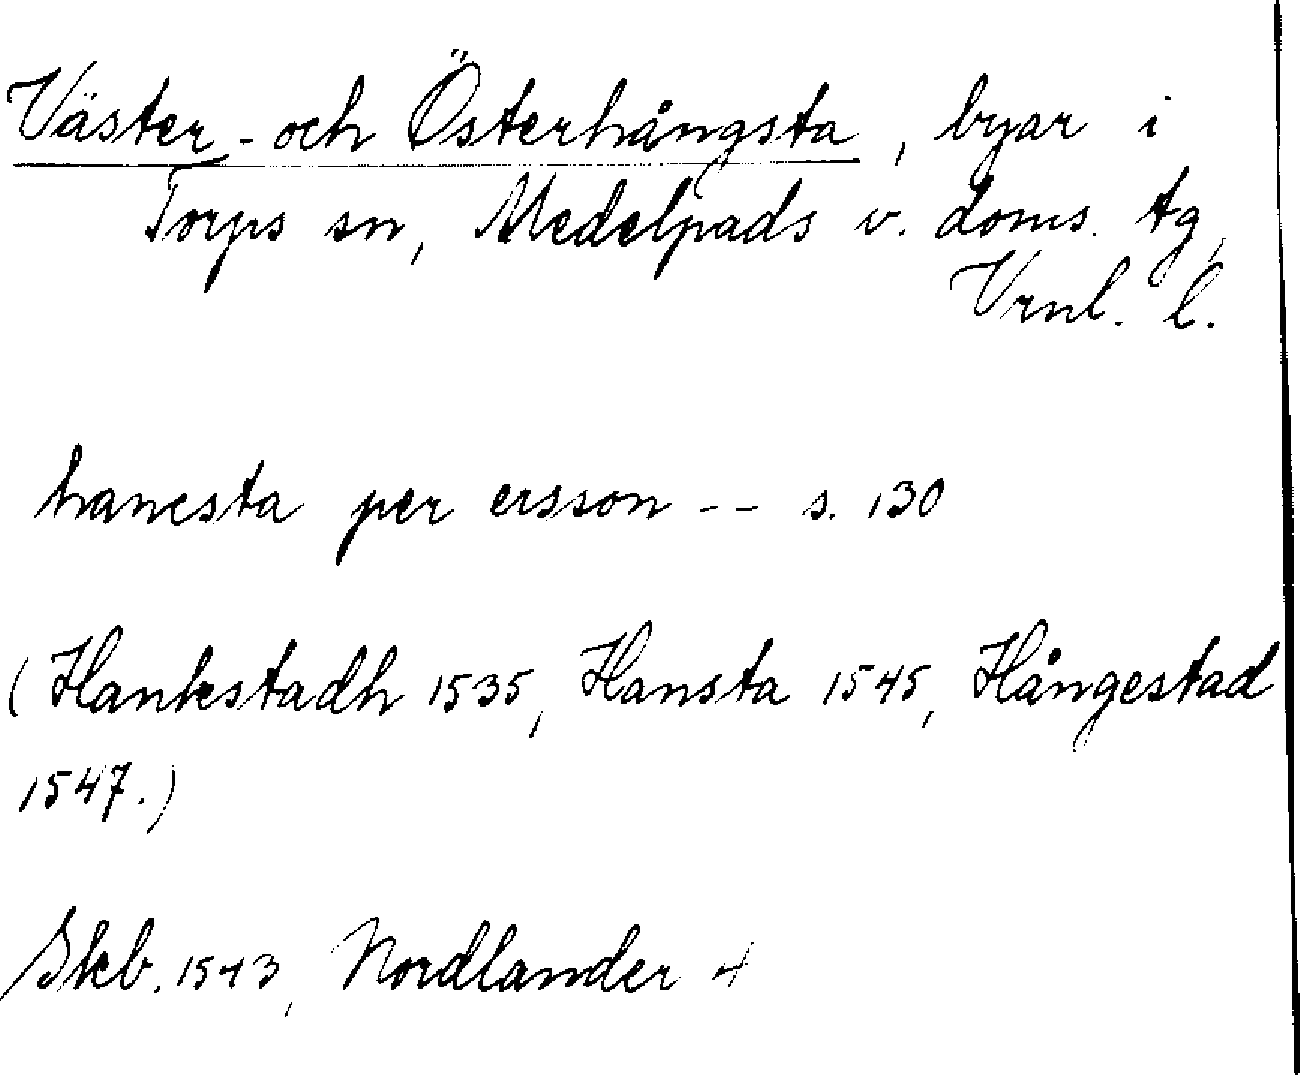 Väster- och Österhångsta, byar i
Torps sn, Medelpads v. doms. tg,
Vrnl. l.
hanesta per ersson -- s. 130
(Hankstadh 1535, Hansta 1545, Hångestad
1547.)
Skb. 1543, Nordlander 4